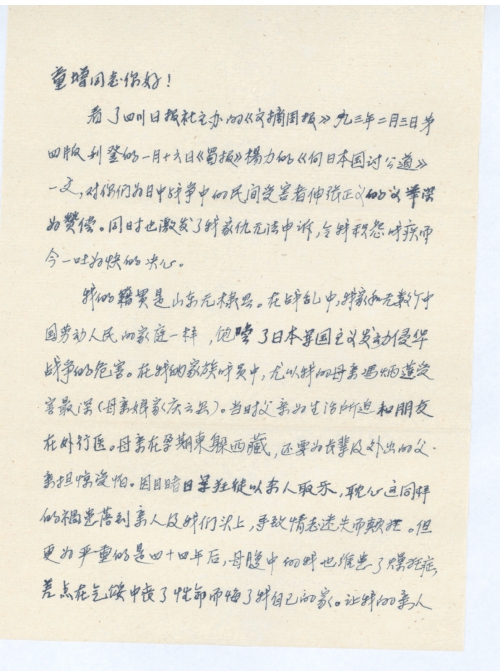 童增同志你好！
看了四川日报社主办的《文摘周报》九三年二月三日第
四版刊登的一月十六日《蜀报》杨力的《向日本国讨公道》
一文，对你们为日中战争中的民间受害者伸张正义的义举深
为赞偿。同时也激发了我家仇无法申诉，令我积怨成疾而
今一吐为快的决心。
我的籍贯是山东无棣县。在战乱中，我家和无数个中
国劳动人民的家庭一样，饱噇了日本军国主义发动侵华
战争的危害。在我的家族成员中，尤以我的母亲冯炳莲受
害最深（母亲娘家庆云县）。当时父亲为生活所迫和朋友
在外行医。母亲在孕期东躲西藏，还要为长辈及外出的父
亲担惊受怕。因目睹日军狂徒以杀人取乐，耽心这同样
的祸患落到亲人及我们头上，导致情志遗失而颠狂。但
更为严重的是四十四年后，母腹中的我也罹患了燥狂症，
差点在气候中丧了性命而悔了我自己的家。让我的亲人